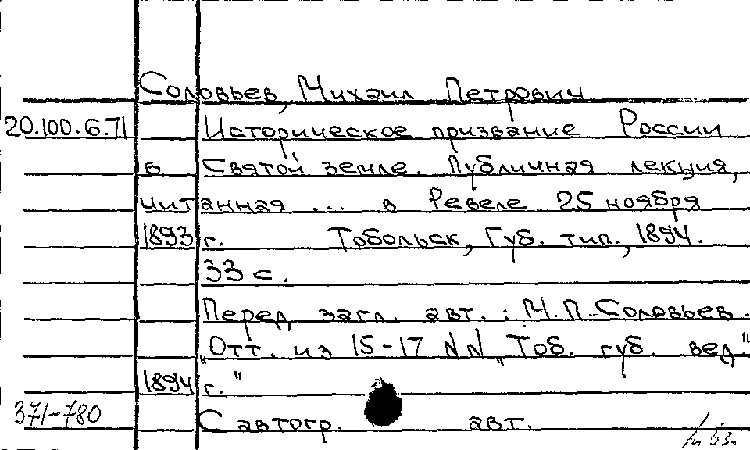 Соловьев, Михаил Петрович
20.100.6.71 Историческое призвание России
в Святой земле. Публичная лекция,
читанная ... в Ревеле 25 ноября
1893 г. Тобольск, Губ. тип., 1894.
33 с.
Перед загл. авт.: М.П. Соловьев.
"Отт. из 15-17 NN "Тоб. губ. вед."
1894 г."
371-780 С автогр. авт.